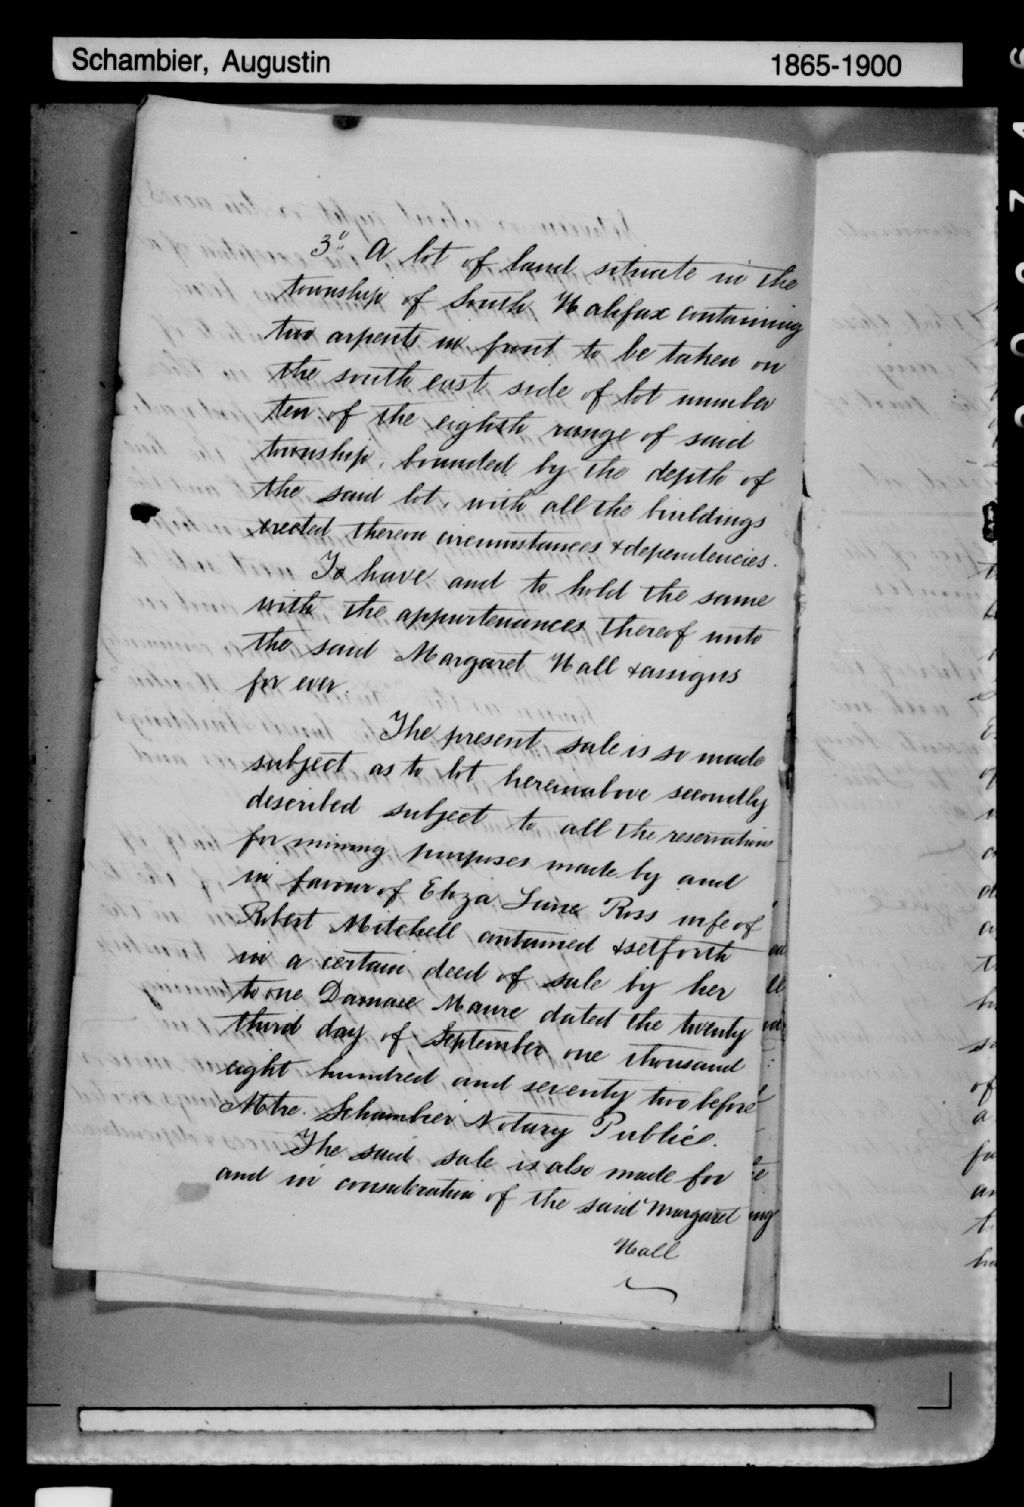 Schambier, Augustin 1865-1900
3º A lot of land situate in the
township of South Halifax containing
two arpents in front to be taken on
the south east side of lot number
ten of the eighth range of said
township, bounded by the depth of
the said lot, with all the buildings
erected thereon circumstances & dependencies.
To have and to hold the same
with the appurtenances thereof unto
the said Margaret Hall & assigns
for ever.
The present sale is so made
subject as to lot hereinabove secondly
described subject to all the reservations
for mining purposes made by and
in favour of Eliza Jane Ross wife of
Robert Mitchell contained & setforth
in a certain deed of sale by her
to one Damase Maure dated the twenty
third day of September one thousand
eight hundred and seventy two before
Mtre. Schambier Notary Public.
The said sale is also made for
and in consideration of the said Margaret
Hall